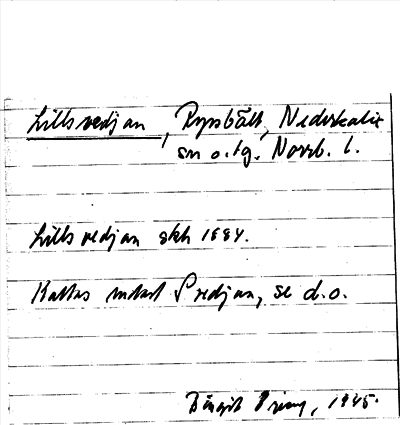 Lillsvedjan, Ryssbält, Nederkalix
sn o. tg. Norrb. l.
Lillsvedjan skh 1884.
Kallas endast Svedjan, se d.o.
Birgit 1945.